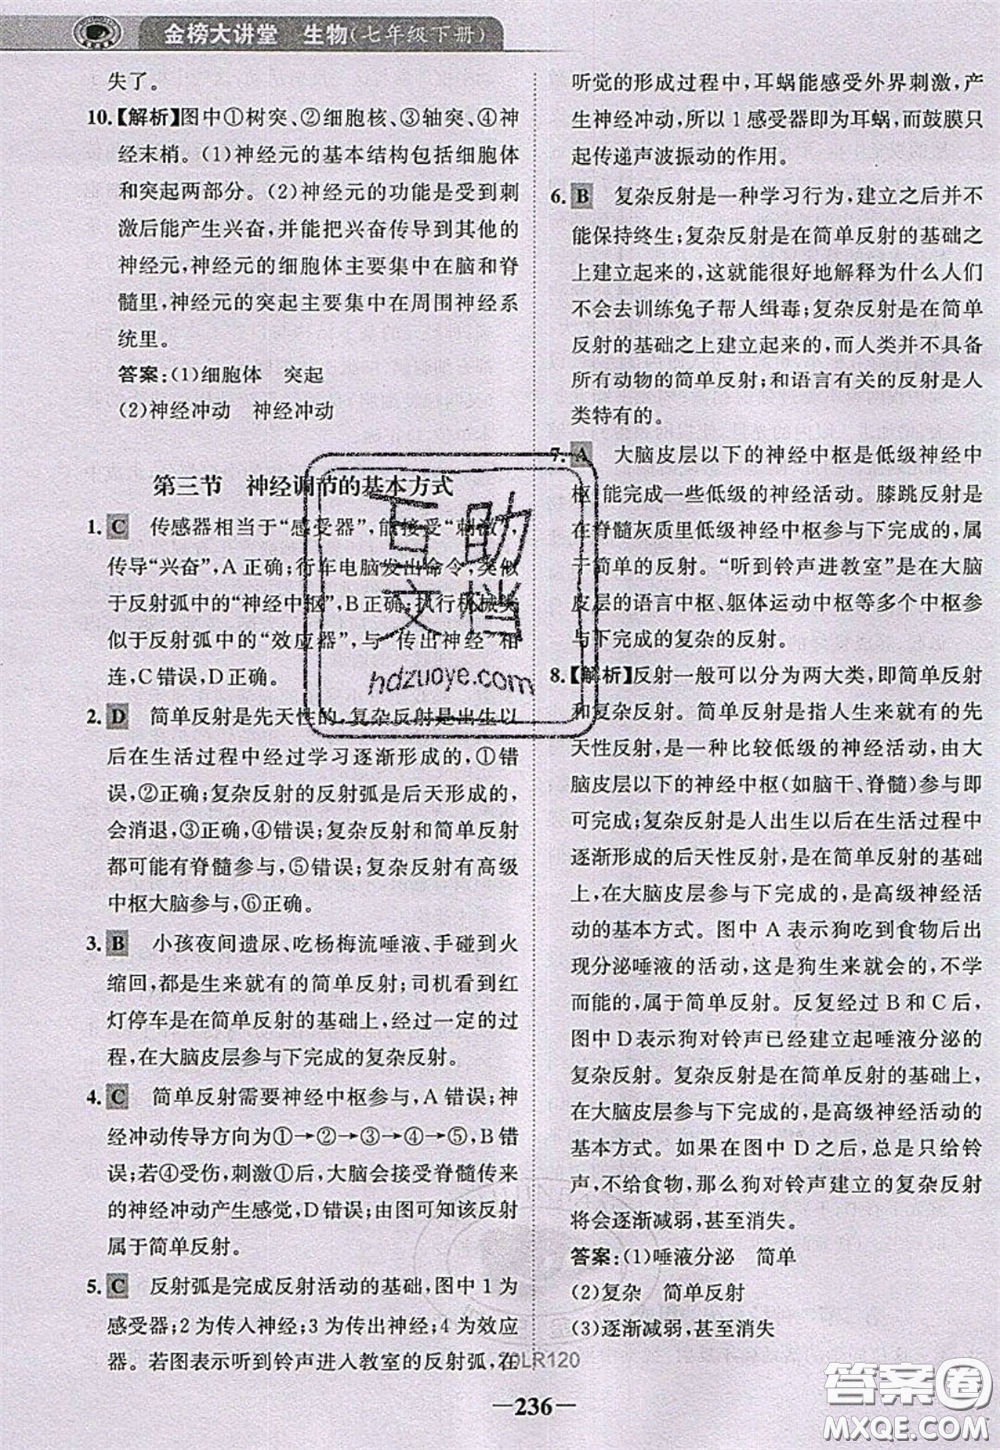 金榜大讲堂　生物(七年级下册)
失了。
10.【解析】图中①树突、②细胞核、③轴突、④神
经末梢。(1)神经元的基本结构包括细胞体
和突起两部分。(2)神经元的功能是受到刺
激后能产生兴奋,并能把兴奋传导到其他的
神经元,神经元的细胞体主要集中在脑和脊
髓里,神经元的突起主要集中在周围神经系
统里。
答案:(1)细胞体　突起
(2)神经冲动　神经冲动
第三节　神经调节的基本方式
1. C　传感器相当于“感受器”,能接受“刺激”,
传导“兴奋”,A正确;行车电脑发出命令,类似
于反射弧中的“神经中枢”,B正确;执行机械类
似于反射弧中的“效应器”,与“传出神经”相
连,C错误,D正确。
2. D　简单反射是先天性的,复杂反射是出生以
后在生活过程中经过学习逐渐形成的,①错
误,②正确;复杂反射的反射弧是后天形成的,
会消退,③正确,④错误;复杂反射和简单反射
都可能有脊髓参与,⑤错误;复杂反射有高级
中枢大脑参与,⑥正确。
3. B　小孩夜间遗尿、吃杨梅流唾液、手碰到火
缩回,都是生来就有的简单反射;司机看到红
灯停车是在简单反射的基础上,经过一定的过
程,在大脑皮层参与下完成的复杂反射。
4. C　简单反射需要神经中枢参与,A错误;神
经冲动传导方向为①→②→③→④→⑤,B错
误;若④受伤,刺激①后,大脑会接受脊髓传来的
神经冲动产生感觉,D错误;由图可知该反射
属于简单反射。
5. C　反射弧是完成反射活动的基础,图中1为
感受器;2为传入神经;3为传出神经;4为效应
器。若图表示听到铃声进入教室的反射弧,在
听觉的形成过程中,耳蜗能感受外界刺激,产
生神经冲动,所以1感受器即为耳蜗,而鼓膜只
起传递声波振动的作用。
6. B　复杂反射是一种学习行为,建立之后并不
能保持终生;复杂反射是在简单反射的基础之
上建立起来的,能很好地解释为什么人们
不会去训练兔子帮人缉毒;复杂反射是在简单
反射的基础之上建立起来的,而人类并不具备
所有动物的简单反射;和语言有关的反射是人
类特有的。
7. A　大脑皮层以下的神经中枢是低级神经中
枢,能完成一些低级的神经活动。膝跳反射是
在脊髓灰质里低级神经中枢参与下完成的,属
于简单反射。“听到铃声进教室”是在大脑
皮层的语言中枢、躯体运动中枢等多个中枢参
与下完成的复杂的反射。
8.【解析】反射一般可以分为两大类,即简单反射
和复杂反射。简单反射是指人生来就有的先
天性反射,是一种比较低级的神经活动,由大
脑皮层以下的神经中枢(如脑干、脊髓)参与即
可完成;复杂反射是人出生以后在生活过程中
逐渐形成的后天性反射,是在简单反射的基础
上,在大脑皮层参与下完成的,是高级神经活
动的基本方式。图中A表示狗吃到食物后出
现分泌唾液的活动,这是狗生来就会的,不学
而能的,属于简单反射。反复经过B和C后,
图中D表示狗对铃声已经建立起唾液分泌的
复杂反射。复杂反射是在简单反射的基础上,
在大脑皮层参与下完成的,是高级神经活动的
基本方式。如果在图中D之后,总是只给铃
声,不给食物,那么狗对铃声建立的复杂反射
将会逐渐减弱,甚至消失。
答案:(1)唾液分泌　简单
(2)复杂　简单反射
(3)逐渐减弱,甚至消失
互助
文档
hdzuoye.com
20LR120
236
答案圈
MXQE.COM